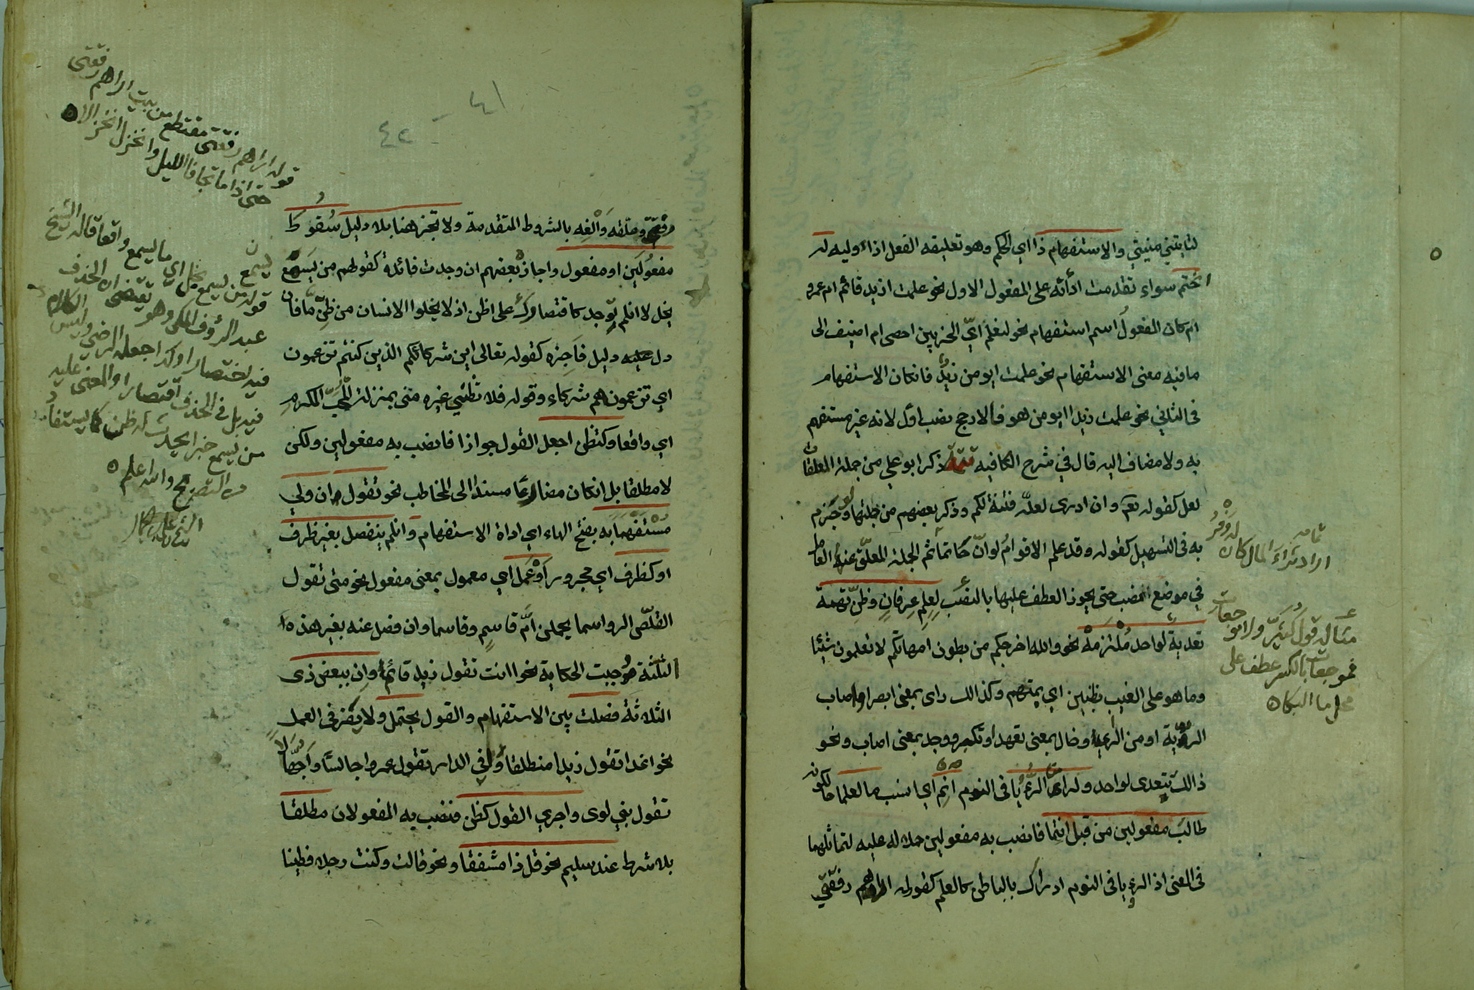 لتأتين منيتي والاستفهام ذا اي الحكم وهو تعليقه الفعل اذا وليه له
انحتم سواء تقدمت اداته على المفعول الاول نحو علمت ازيد قائم ام عمرو
ام كان المفعول اسم استفهام نحو لنعلم اي الحزبين احصى ام اضيف الى
ما فيه معنى الاستفهام نحو علمت ابو من زيد فان كان الاستفهام
في الثاني نحو علمت زيدا ابو من هو فالارجح نصب الاول لانه غير مستفهم
به ولا مضاف اليه قال في شرح الكافيه تتمة ذكر ابو علي من جملة المعلقات
لعل كقوله تعالى وان ادري لعله فتنة لكم وذكر بعضهم من جملتها لو وجزم
به في التسهيل كقوله وقد علم الاقوام لو ان حاتما ثم الجملة المعلق عنها العامل
في موضع النصب حتى يجوز العطف عليها بالنصب لعلم عرفان وظن تهمة
تعدية لواحد ملتزمة نحو والله اخرجكم من بطون امهاتكم لا تعلمون شيئا
وما هو على الغيب بظنين اي بمتهم وكذلك راى بمعنى ابصر او اصاب
الرية او من الراي وخال بمعنى تعهد او تكبر ووجد بمعنى اصاب ونحو
ذلك يتعدى لواحد ولراى الرؤيا في النوم انم اي انسب ما لعلما حالكونه
طالب مفعولين من قبل انتما فانصب به مفعولين حملا له عليه لتماثلهما
في المعنى اذ الرؤيا في النوم ادراك بالباطن كالعلم كقوله اراهم رفقتي
ثمامه
اراد ثراء المال كان له وفر
غير موجعات بالكسر عطف على
محل ما البكا
٤١
٤٢
رفقتي ومعلقه والغه بالشروط المتقدمة ولا تجز هنا بلا دليل سقوط
مفعولين او مفعول واجاز بعضهم ان وجدت فائدة كقولهم من يسمع
يخل لا ان لم توجد كاقتصارك على اظن اذ لا يخلو الانسان من ظن ما فان
دل عليه دليل فاجزه كقوله تعالى اين شركائكم الذين كنتم تزعمون
اي تزعمونهم شركاء وقوله فلا تظني غيره مني بمنزلة المحب المكرم
اي واقعا وكتظن اجعل القول جوازا فانصب به مفعولين ولكن
لا مطلقا بل ان كان مضارعا مسندا الى المخاطب نحو تقول وان ولي
مستفهما به بفتح الهاء اي اداة الاستفهام وان لم ينفصل بغير ظرف
او كظرف اي مجرور او عمل اي معمول بمعنى مفعول نحو متى تقول
القلص الرواسما يحملن ام قاسم وقاسما وان فصل عنه بغير هذه
الثلثة وجبت الحكاية نحو اانت تقول زيد قائم وان ببعض ذي
الثلاثة فصلت بين الاستفهام والقول يحتمل ولا يضر في العمل
نحو اغدا تقول زيدا منطلقا وافي الدار تقول عمروا جالسا واجهالا
تقول بني لوى واجري القول كظن فنصب به المفعولان مطلقا
بلا شرط عند سليم نحو قل ذا مشفقا ونحو قالت وكنت رجلا فطينا
قوله اراهم رفقتي مقتطع من بيت اراهم رفقتي
حتى اذا ما تجافى الليل وانخزل انخزالا
قوله من يسمع يخل اي ما يسمع واقعا قاله الشيخ
عبد الرؤف المكي وهو يقتضي ان الحذف
فيه اختصارا وكذا جعله الرضي وليس الكلام